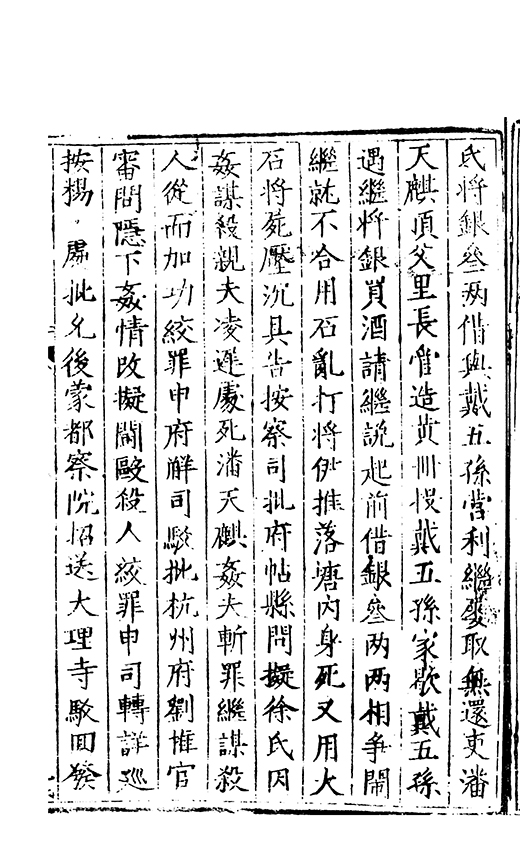 氏將銀叁兩借與戴五孫營利繼屢取無還吏潘
天麒頂父里長催造黄冊慢戴五孫家歇戴五孫
遇繼將銀買酒請繼說起前借銀叁两两相争鬧
繼就不合用石亂打將伊推落塘内身死又用大
石將死壓沉具告按察司批府帖縣問擬徐氏因
姦謀殺親夫凌遲處死潘天麒姦夫斬罪繼謀殺
人從而加功絞罪申府觧司駁批杭州府劉推官
審問隱下姦情改擬鬪毆殺人絞罪申司轉詳廵
按楊處批允後蒙都察院招送大理寺駁回發